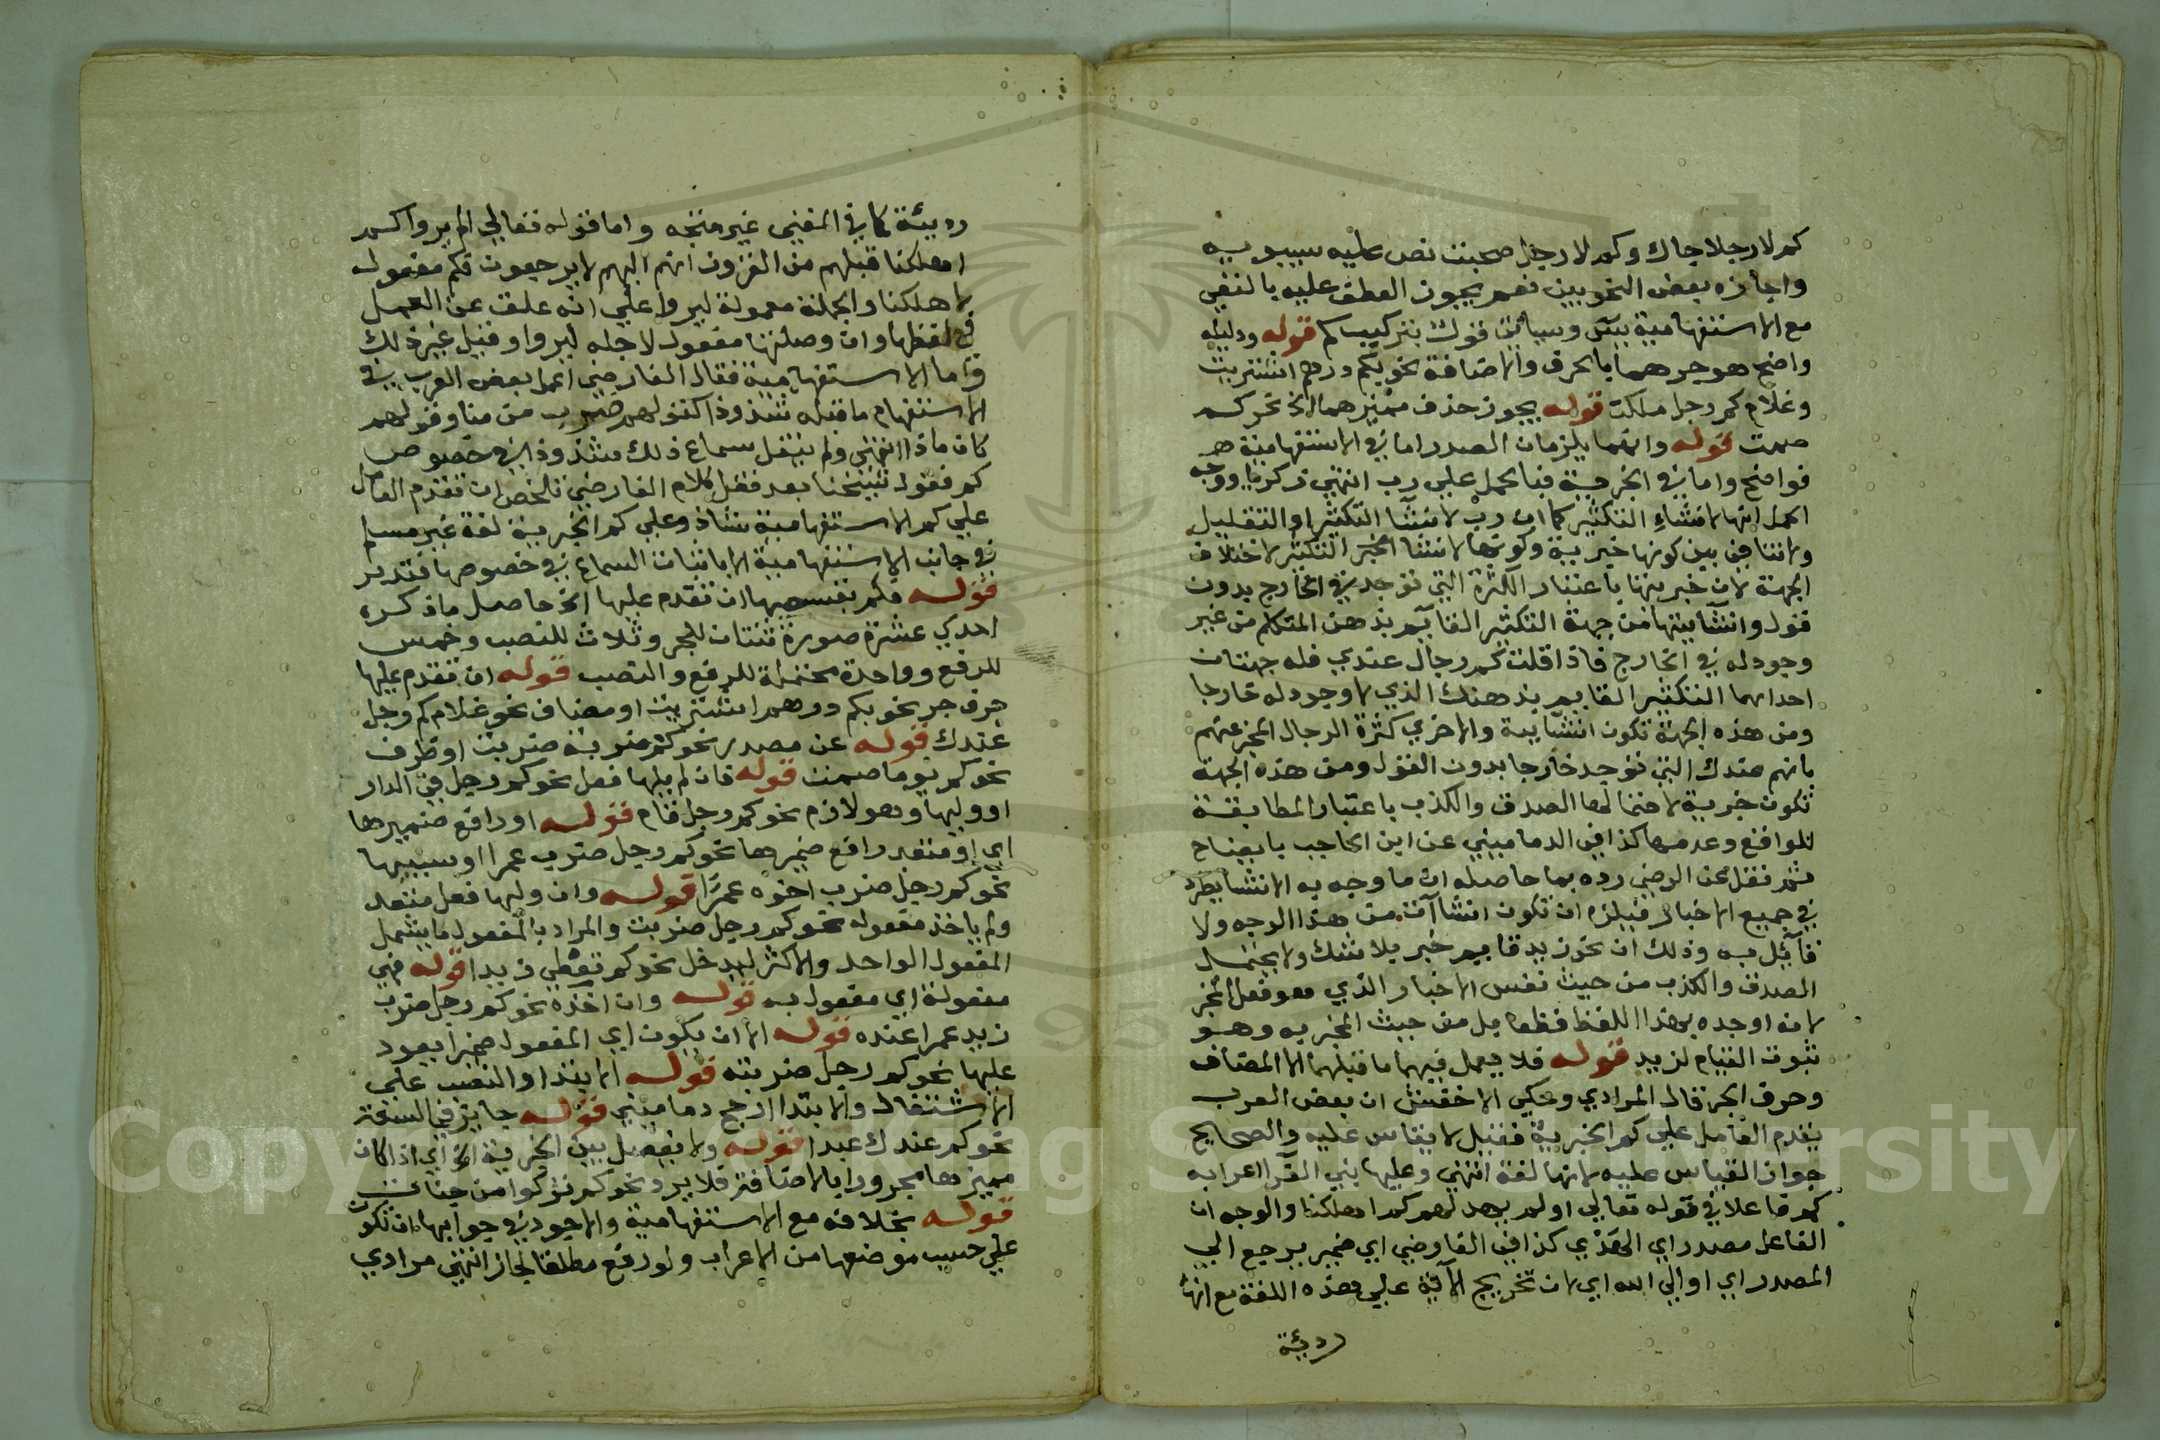 كم لا رجلا جاك وكم لا رجل صحبت نص عليه سيبويه
واجازه بعض النحويين نعم يجوز العطف عليه بالنفي
مع الاستفهامية بيس وسياتي قولك بتركيب كم قوله ودليله
واضح هو جرهما بالحرف والاضافة نحو بكم درهم اشتريت
وغلام كم رجل ملكت قوله يجوز حذف مميزهما الخ نحو كم
صمت قوله وانهما يلزمان الصدر اما في الاستفهامية
فواضح واما في الخبرية فبالحمل علي رب انتهي زكريا ووجه
الحمل انها لانشاء التكثير كما ان رب لانشا التكثير او التقليل
ولا تنافي بين كونها خبرية وكونها لانشا التكثير لاختلاف
الجهة لان خبريتها باعتبار الكثرة التي توجد في الخارج بدون
قول وانشاييتها من جهة التكثير القايم بذهن المتكلم من غير
وجود له في الخارج فاذا قلت كم رجال عندي فله جهتان
احداهما التكثير القايم بذهنك الذي لا وجود له خارجا
ومن هذه الجهة تكون انشايية والاخري كثرة الرجال المخبر عنهم
بانهم عندك التي توجد خارجا بدون القول ومن هذه الجهة
تكون خبرية لاحتمالها الصدق والكذب باعتبار المطابقة
للواقع وعدمها كذا في الدماميني عن ابن الحاجب بايضاح
ثم نقل عن الرضي رده بما حاصله ان ما وجه به الانشا يطرد
في جميع الاخبار فيلزم ان تكون انشاآت من هذا الوجه ولا
قايل به وذلك ان نحو زيد قايم خبر بلا شك ولا يحتمل
الصدق والكذب من حيث نفس الاخبار الذي هو فعل المخبر
لانه اوجده بهذا اللفظ قطعا بل من حيث المخبر به وهو
ثبوت القيام لزيد قوله فلا يعمل فيهما ما قبلهما الا المضاف
وحرف الجر قال المرادي وحكي الاخفش ان بعض العرب
يقدم العامل علي كم الخبرية فقيل لا يقاس عليه والصحايح
جواز القياس عليه لانها لغة انتهي وعليها بني الفرا اعرابه
كم فاعلا في قوله تعالي اولم يهد لهم كم اهلكنا والوجه ان
الفاعل مصدر اي الهدي كذا في الفارضي اي ضمير يرجع الي
المصدر اي او الي الله اي لان تخريج الآية علي هذه اللغة مع انها
رديئة
رديئة كما في المغني غير متجه واما قوله تعالي الم يروا كم
اهلكنا قبلهم من القرون انهم اليهم لا يرجعون فكم مفعول
لاهلكنا والجملة معمولة ليروا علي انه علق عن العمل
في لفظها وان وصلتها مفعول لاجله ليروا وقيل غير ذلك
واما الاستفهامية فقال الفارضي اعمل بعض العرب في
الاستفهام ما قبله شذوذا كقولهم ضرب من منا وقولهم
كان ماذا انتهي ولم ينقل سماع ذلك شذوذا في خصوص
كم فقول شيخنا بعد نقل كلام الفارضي تلخص ان تقدم العامل
علي كم الاستفهامية شاذ وعلي كم الخبرية لغة غير مسلم
في جانب الاستفهامية الا باثبات السماع في خصوصها فتدبر
قوله فكم بقسميها ان تقدم عليها الخ حاصل ما ذكره
احدي عشرة صورة ثنتان للجر وثلاث للنصب وخمس
للرفع وواحدة محتملة للرفع والنصب قوله ان تقدم عليها
حرف جر نحو بكم درهم اشتريت او مضاف نحو غلام كم رجل
عندك قوله عن مصدر نحو كم ضربة ضربت او ظرف
نحو كم يوما صمت قوله فان لم يلها فعل نحو كم رجل في الدار
او وليها وهو لازم نحو كم رجل قام قوله او رافع ضميرها
اي او متعد رافع ضميرها نحو كم رجل ضرب عمرا او سببيها
نحو كم رجل ضرب اخوه عمرا قوله وان وليها فعل متعد
ولم ياخذ مفعوله نحو كم رجل ضربت والمراد بالمفعول ما يشمل
المفعول الواحد والاكثر ليدخل نحو كم تعطي زيدا قوله فهي
مفعولة اي مفعول به قوله وان اخذه نحو كم رجل ضرب
زيد عمرا عنده قوله الا ان يكون اي المفعول ضميرا يعود
عليها نحو كم رجل ضربته قوله الابتدا والنصب علي
الاشتغال والابتدا ارجح دماميني قوله جايز في السعة
نحو كم عندك عبدا قوله ولا يفصل بين الخبرية الخ اي اذا كان
مميزها مجرورا بالاضافة فلا يرد نحو كم تركوا من جنات
قوله بخلافه مع الاستفهامية والاجود في جوابها ان تكون
علي حسب موضعها من الاعراب ولو رفع مطلقا لجاز انتهي مرادي